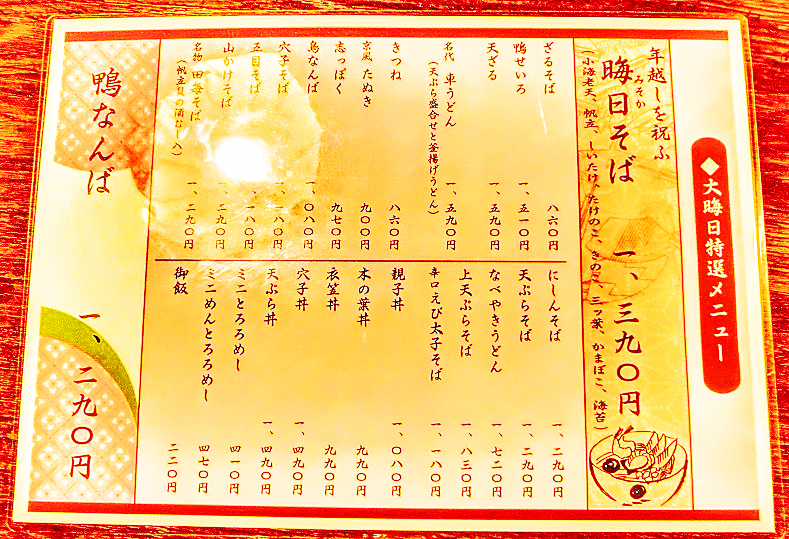 ◆大晦日特選メニュー
年越しを祝ふ
みそか
晦日そば 一、三九〇円
(小海老天、帆立、しいたけ、たけのこ、きのこ、三ッ葉、かまぼこ、海苔)
ざるそば 八六〇円
鴨せいろ 一、五一〇円
天ざる 一、五九〇円
名代 車うどん 一、五九〇円
(天ぷら盛合せと釜揚げうどん)
きつね 八六〇円
京風 たぬき 九〇〇円
志っぽく 九七〇円
鳥なんば 一、〇八〇円
穴子そば 一、一八〇円
五目そば 一、一八〇円
山かけそば 一、二九〇円
名物 田毎そば 一、二九〇円
(帆立貝の酒むし入)
にしんそば 一、二九〇円
天ぷらそば 一、二九〇円
なべやきうどん 一、七二〇円
上天ぷらそば 一、八三〇円
辛口えび太子そば 一、一八〇円
親子丼 一、〇八〇円
木の葉丼 九九〇円
衣笠丼 九九〇円
穴子丼 一、四九〇円
天ぷら丼 一、四九〇円
ミニとろろめし 四一〇円
ミニめんとろろめし 四七〇円
御飯 二二〇円
鴨なんば 一、二九〇円